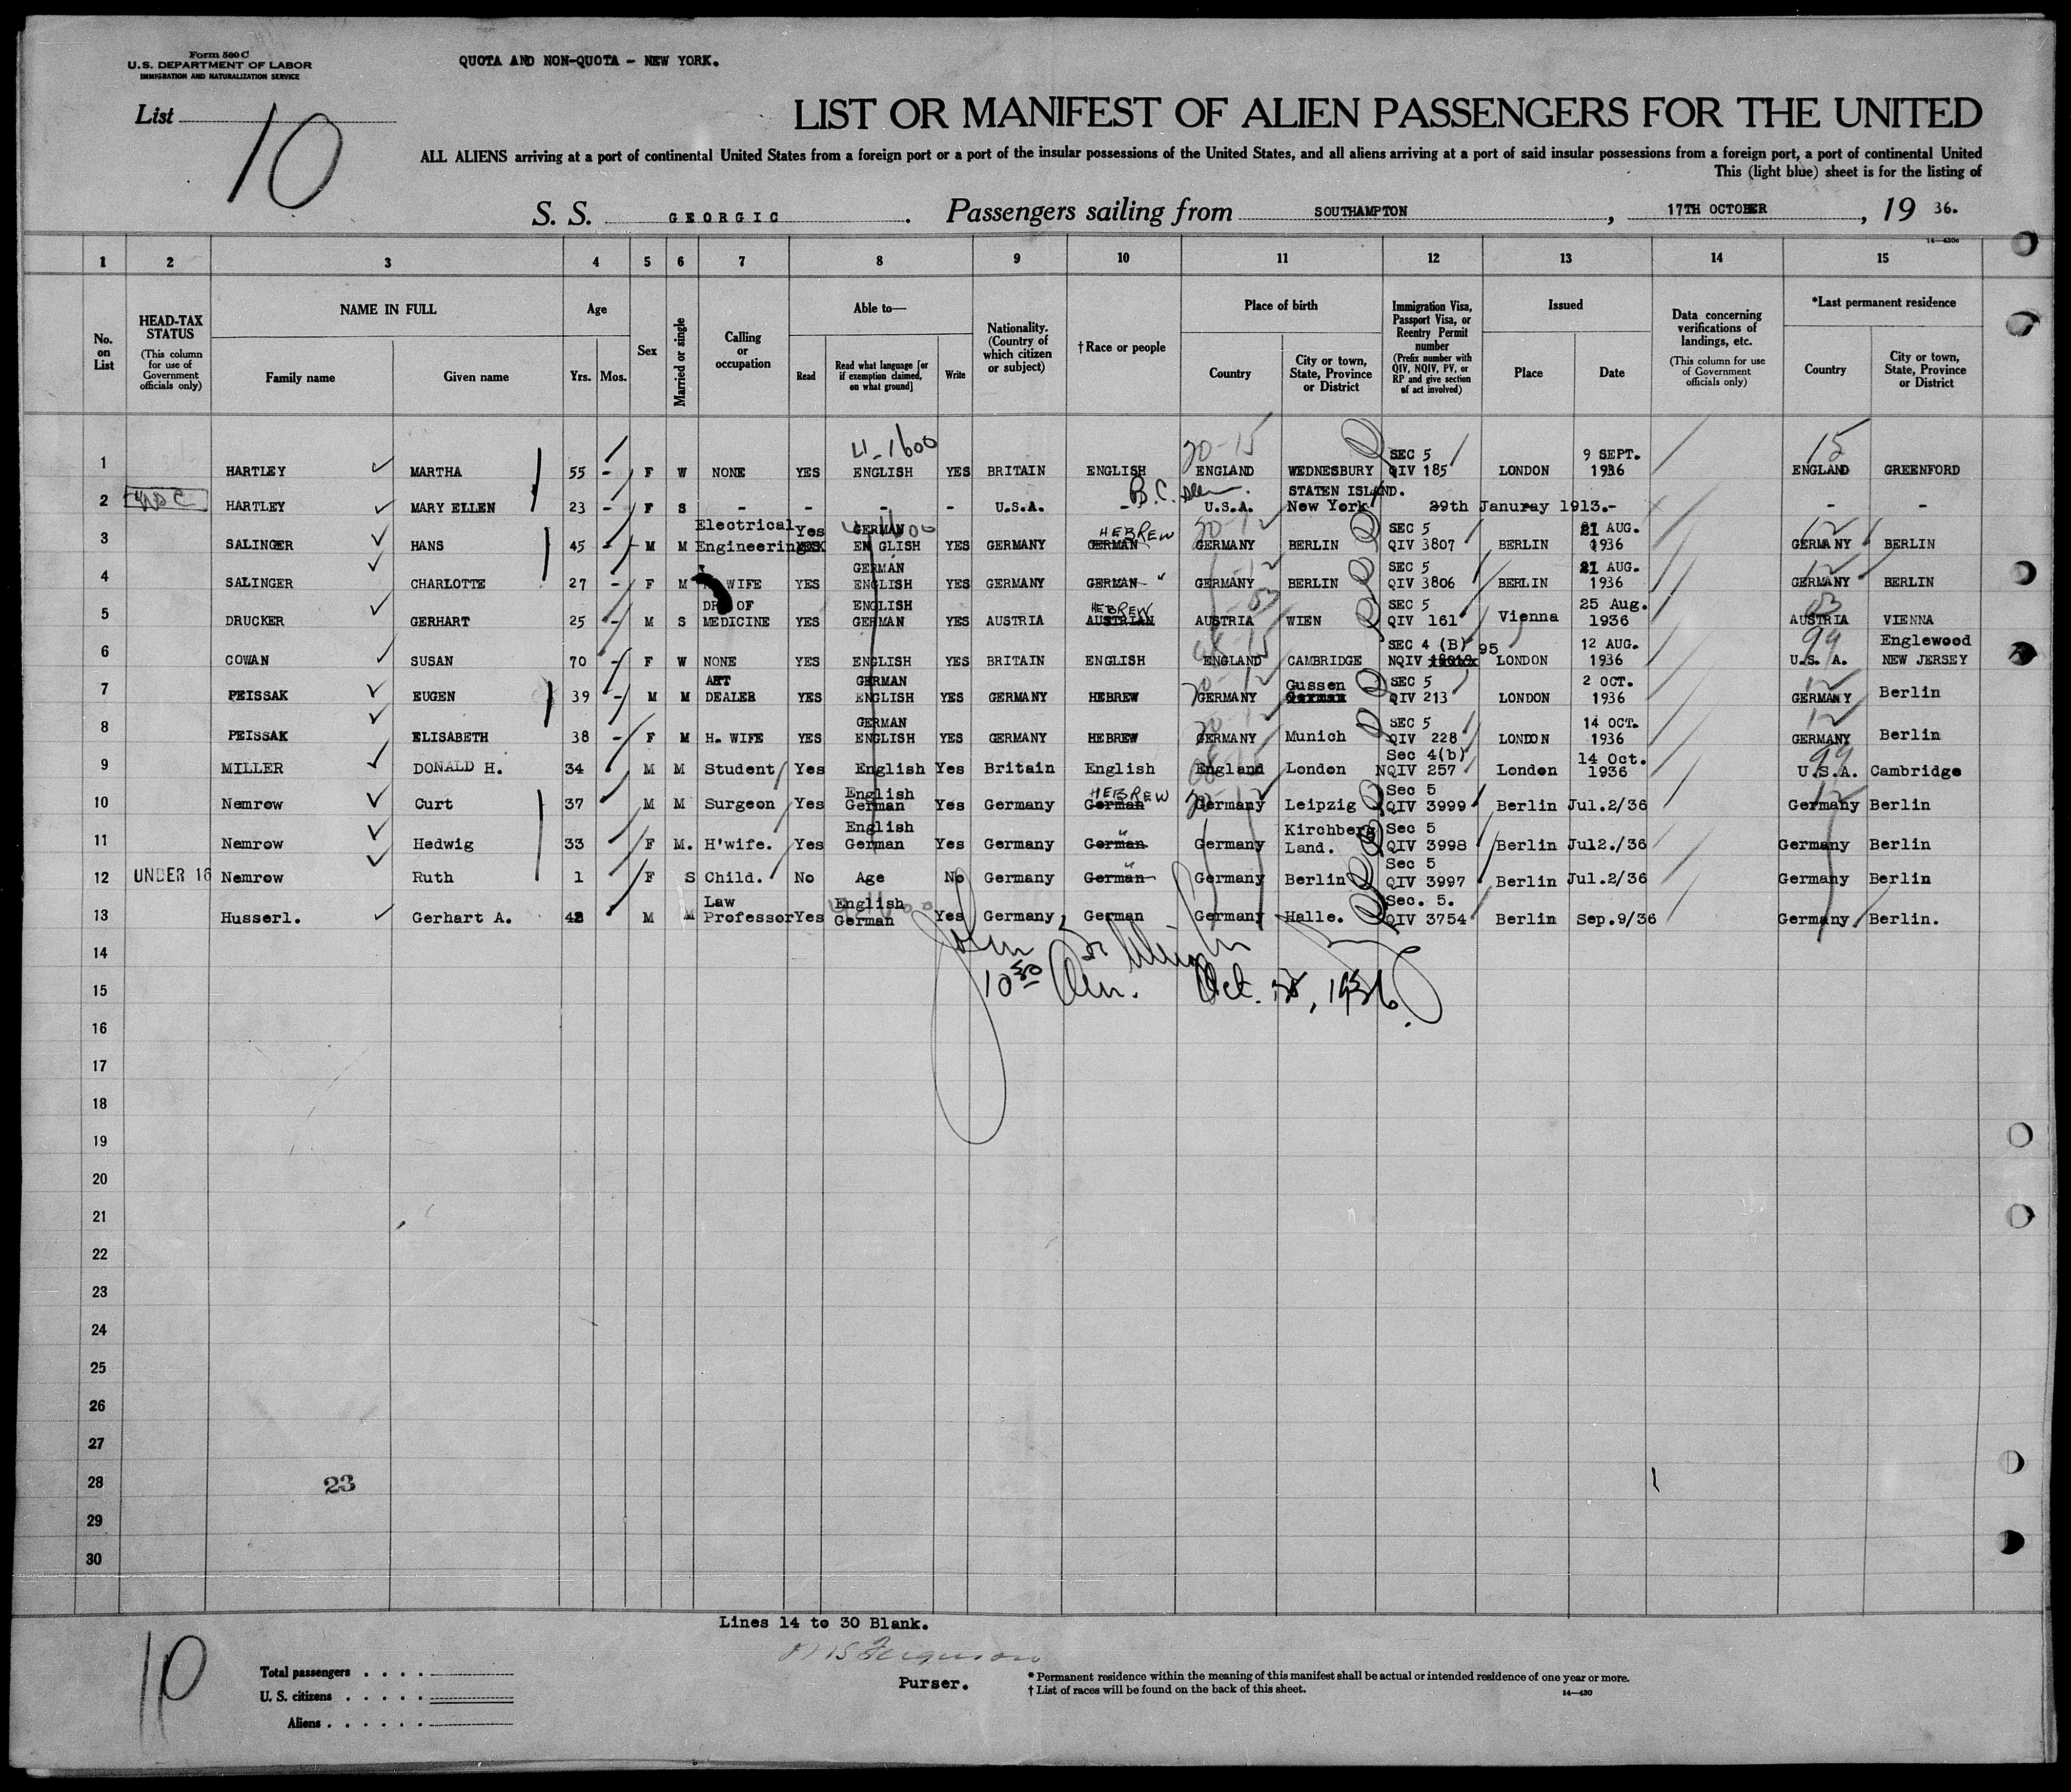 Form 500 C
U.S. DEPARTMENT OF LABOR
IMMIGRATION AND NATURALIZATION SERVICE
QUOTA AND NON-QUOTA - NEW YORK.
List 10
LIST OR MANIFEST OF ALIEN PASSENGERS FOR THE UNITED
ALL ALIENS arriving at a port of continental United States from a foreign port or a port of the insular possessions of the United States, and all aliens arriving at a port of said insular possessions from a foreign port, a port of continental United
This (light blue) sheet is for the listing of
S. S. GEORGIC. Passengers sailing from SOUTHAMPTON, 17TH OCTOBER, 19 36.
14—430c
1 2 3 4 5 6 7 8 9 10 11 12 13 14 15
No. on List
HEAD-TAX STATUS (This column for use of Government officials only)
NAME IN FULL Family name Given name
Age Yrs. Mos.
Sex
Married or single
Calling or occupation
Able to— Read Read what language [or if exemption claimed, on what ground] Write
Nationality. (Country of which citizen or subject)
†Race or people
Place of birth Country City or town, State, Province or District
Immigration Visa, Passport Visa, or Reentry Permit number (Prefix number with QIV, NQIV, PV, or RP and give section of act involved)
Issued Place Date
Data concerning verifications of landings, etc. (This column for use of Government officials only)
*Last permanent residence Country City or town, State, Province or District
4-1600 20-15 15
1 HARTLEY MARTHA 55 - F W NONE YES ENGLISH YES BRITAIN ENGLISH ENGLAND WEDNESBURY SEC 5 QIV 185 LONDON 9 SEPT. 1936 ENGLAND GREENFORD
2 HARTLEY MARY ELLEN 23 - F S - - - - U.S.A. - B.C. U.S.A. STATEN ISLAND. New York 29th Januray 1913.- - -
3 SALINGER HANS 45 - M M Electrical Engineering Yes GERMAN ENGLISH YES GERMANY GERMAN HEBREW GERMANY BERLIN SEC 5 QIV 3807 BERLIN 21 AUG. 1936 GERMANY BERLIN
4 SALINGER CHARLOTTE 27 - F M WIFE YES GERMAN ENGLISH YES GERMANY GERMAN " GERMANY BERLIN SEC 5 QIV 3806 BERLIN 21 AUG. 1936 GERMANY BERLIN
5 DRUCKER GERHART 25 - M S DR. OF MEDICINE YES ENGLISH GERMAN YES AUSTRIA HEBREW AUSTRIAN AUSTRIA WIEN SEC 5 QIV 161 Vienna 25 Aug. 1936 AUSTRIA VIENNA
6 COWAN SUSAN 70 - F W NONE YES ENGLISH YES BRITAIN ENGLISH ENGLAND CAMBRIDGE SEC 4 (B) NQIV 95 LONDON 12 AUG. 1936 U.S. A. Englewood NEW JERSEY
7 PEISSAK EUGEN 39 - M M ART DEALER YES GERMAN ENGLISH YES GERMANY HEBREW GERMANY Gussen German SEC 5 QIV 213 LONDON 2 OCT. 1936 GERMANY Berlin
8 PEISSAK ELISABETH 38 - F M H. WIFE YES GERMAN ENGLISH YES GERMANY HEBREW GERMANY Munich SEC 5 QIV 228 LONDON 14 OCT. 1936 GERMANY Berlin
9 MILLER DONALD H. 34 M M Student Yes English Yes Britain English England London Sec 4(b) NQIV 257 London 14 Oct. 1936 U.S.A. Cambridge
10 Nemrow Curt 37 M M Surgeon Yes English German Yes Germany HEBREW German Germany Leipzig Sec 5 QIV 3999 Berlin Jul.2/36 Germany Berlin
11 Nemrow Hedwig 33 F M. H'wife. Yes English German Yes Germany " German Germany Kirchberg Land. Sec 5 QIV 3998 Berlin Jul2./36 Germany Berlin
12 UNDER 16 Nemrow Ruth 1 F S Child. No Age No Germany " German Germany Berlin Sec 5 QIV 3997 Berlin Jul.2/36 Germany Berlin
13 Husserl. Gerhart A. 42 M M Law Professor Yes English German Yes Germany German Germany Halle. Sec. 5. QIV 3754 Berlin Sep.9/36 Germany Berlin.
14
15 10 30 Am. Oct. , 1936.
16
17
18
19
20
21
22
23
24
25
26
27
28 23
29
30
Lines 14 to 30 Blank.
Ferguson
Purser.
10
Total passengers
U. S. citizens
Aliens
* Permanent residence within the meaning of this manifest shall be actual or intended residence of one year or more.
† List of races will be found on the back of this sheet.
14—430